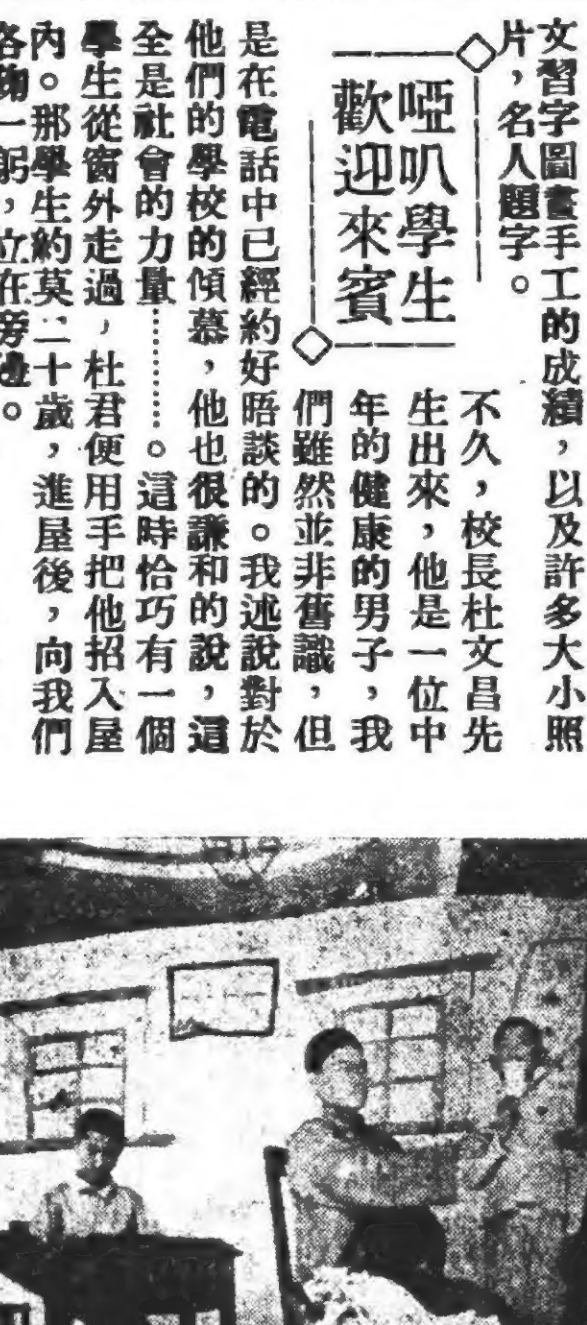 文習字圖畫手工的成績，以及許多大小照
片，名人題字。
啞叭學生
歡迎來賓
不久，校長杜文昌先
生出來，他是一位中
年的健康的男子，我
們雖然並非舊識，但
是在電話中已經約好晤談的。我述說對於
他們的學校的傾慕，他也很謙和的說，這
全是社會的力量………。這時恰巧有一個
學生從窗外走過，杜君便用手把他招入屋
內。那學生約莫二十歲，進屋後，向我們
各鞠一躬，立在旁邊。